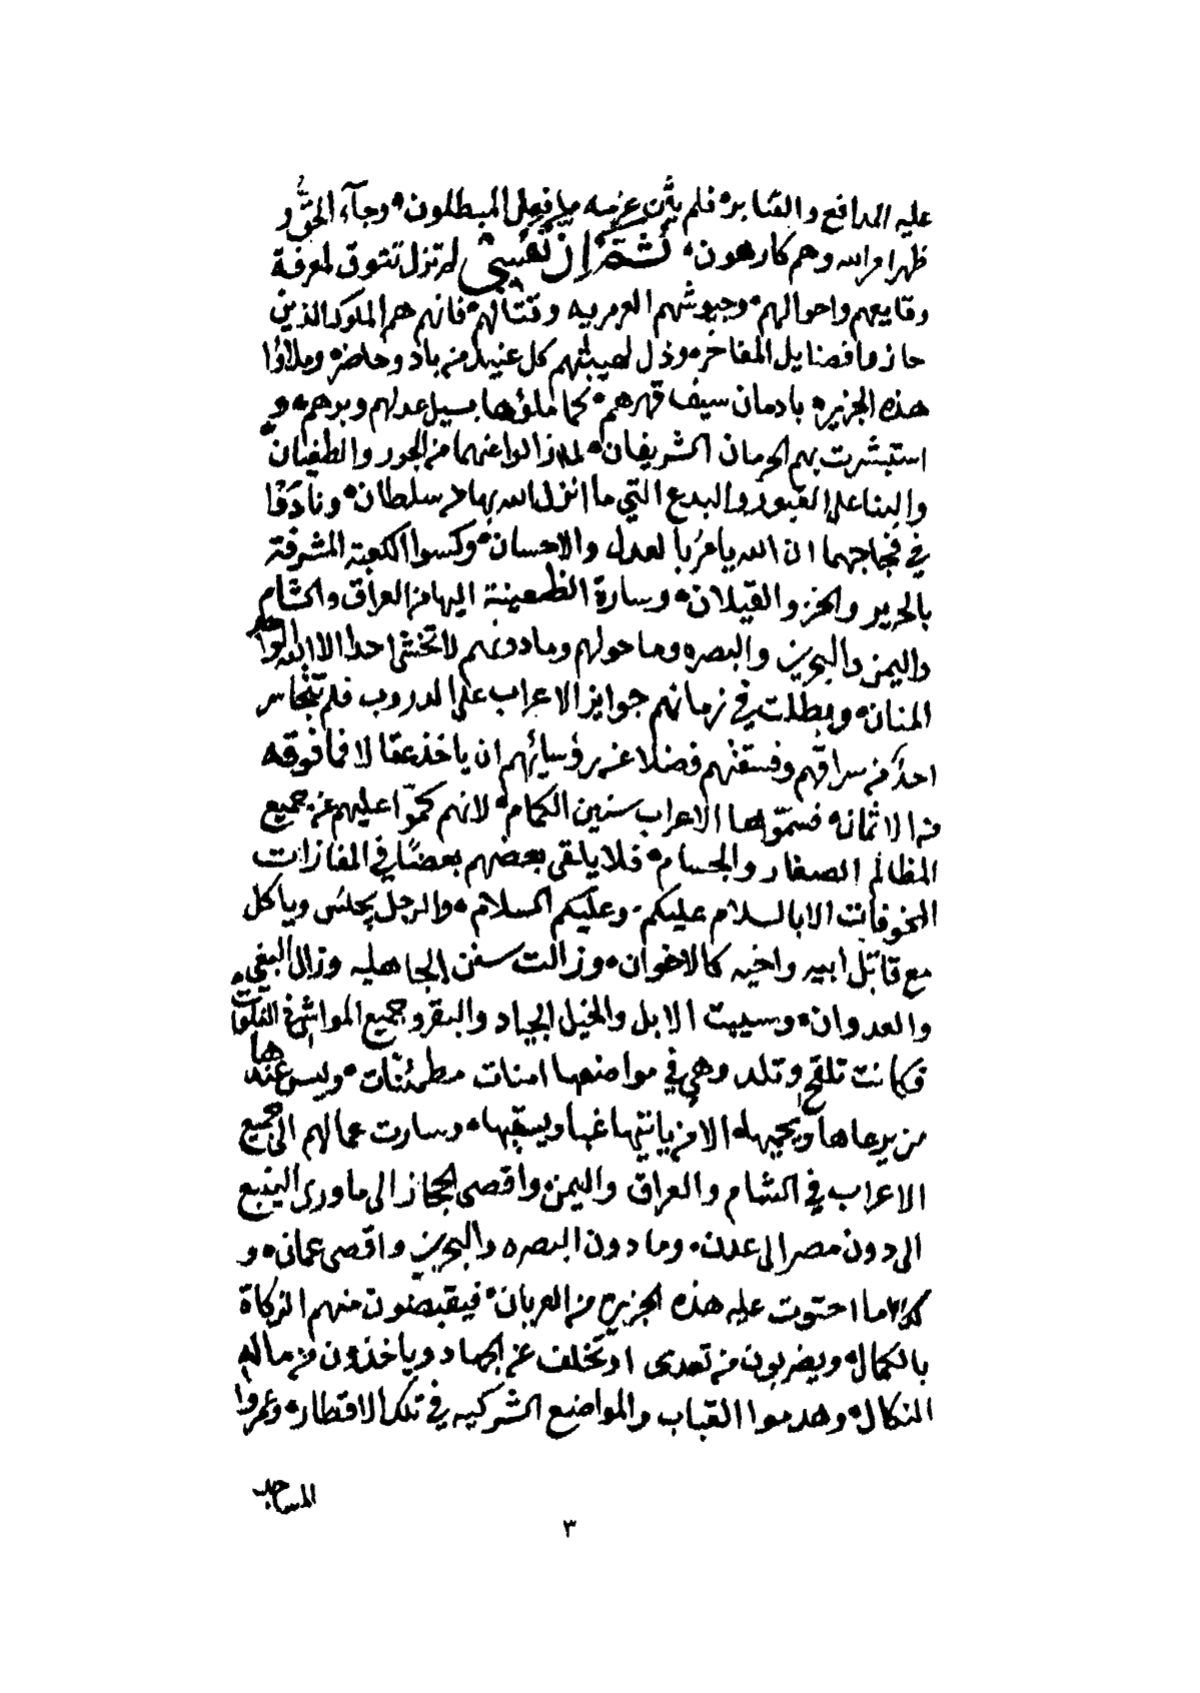 عليه المدافع والقنابر فلم يثن عزمه ما فعل المبطلون وجآء الحقُّ و
ظهر امر الله وهم كارهون ثمَّ إنَّ نَفْسِي لم تزل تتوق لمعرفة
وقايعهم واحوالهم وجيوشهم العرمريه وقتالهم فانهم هم الملوك الذين
حازوا فضايل المفاخر وذل لهيبتهم كل عنيد من باد وحاضر وملاؤا
هذه الجزيره بادمان سيف قهرهم كما ملؤها بسيل عدلهم وبرهم و
استبشرت بهم الحرمان الشريفان لما ازالوا عنهما من الجور والطغيان
والبنا على القبور والبدع التي ما انزل الله بها من سلطان ونادَوْا
في فجاجهما ان الله يامرُ بالعدل والاحسان وكسوا الكعبة المشرفة
بالحرير والخز والقيلان وسارة الظعينة اليها من العراق والشام
واليمن والبحرين والبصره وما حولهم وما دونهم لا تخشى احدا الا الله الواحد
المنان وبطلت في زمانهم جوايز الاعراب على الدروب فلم يتجاسر
احدٌ من سراقهم وفسقتهم فضلا عن رؤسائهم ان ياخذ عقالا فما فوقه
من الاثمان فسمّوها الاعراب سنين الكمام لانهم كمّوا عليهم عن جميع
المظالم الصغار والجسام فلا يلقى بعضهم بعضًا في المفازات
المخوفات الا بالسلام عليكم وعليكم السلام والرجل يجلس وياكل
مع قاتل ابيه واخيه كالاخوان وزالت سنن الجاهليه وزال البغي
والعدوان وسيبت الابل والخيل الجياد والبقر وجميع المواشي في الفلوات
فكانت تلقح وتلد وهي في مواضعها امنات مطمئنات وليس عندها
من يرعاها ويحميها الا من ياتيها غبا ويسقيها وسارت عمالهم الى جميع
الاعراب في الشام والعراق واليمن واقصى الحجاز الى ما ورى الينبع
الى دون مصر الى عدن وما دون البصره والبحرين واقصى عمان و
كلما احتوت عليه هذه الجزيره من العربان فيقبضون منهم الزكاة
بالكمال ويضربون من تعدى او تخلف عن الجهاد وياخذون من ماله
النكال وهدموا القباب والمواضع الشركيه في تلك الاقطار وعمروا
المساجد
٣